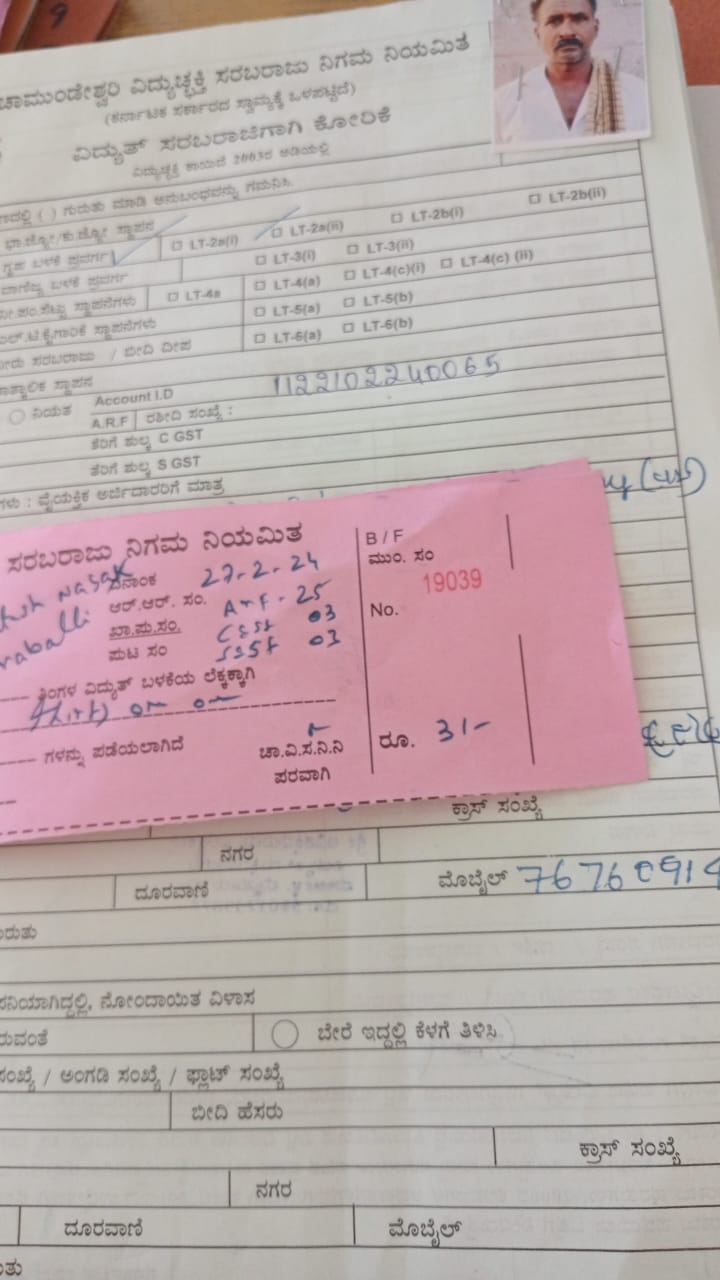 9
ಚಾಮುಂಡೇಶ್ವರಿ ವಿದ್ಯುಚ್ಛಕ್ತಿ ಸರಬರಾಜು ನಿಗಮ ನಿಯಮಿತ
(ಕರ್ನಾಟಕ ಸರ್ಕಾರದ ಸ್ವಾಮ್ಯಕ್ಕೆ ಒಳಪಟ್ಟಿದೆ)
ವಿದ್ಯುತ್ ಸರಬರಾಜಿಗಾಗಿ ಕೋರಿಕೆ
ವಿದ್ಯುಚ್ಛಕ್ತಿ ಕಾಯಿದೆ 2003ರ ಅಡಿಯಲ್ಲಿ
( ) ಗುರುತು ಮಾಡಿ ಅನುಬಂಧವನ್ನು ಗಮನಿಸಿ.
ಭಾ.ಜ್ಯೋ/ಕು.ಜ್ಯೋ ಸ್ಥಾಪನ
ಗೃಹ ಬಳಕೆ ಪ್ರವರ್ಗ □ LT-2a(i) □ LT-2a(ii) □ LT-2b(i) □ LT-2b(ii)
ವಾಣಿಜ್ಯ ಬಳಕೆ ಪ್ರವರ್ಗ □ LT-3(i) □ LT-3(ii)
ನೀ.ಪಂ.ಸೆಟ್ಟು ಸ್ಥಾಪನೆಗಳು □ LT-4a □ LT-4(a) □ LT-4(c)(i) □ LT-4(c) (ii)
ಎಲ್.ಟಿ.ಕೈಗಾರಿಕೆ ಸ್ಥಾಪನೆಗಳು □ LT-5(a) □ LT-5(b)
ನೀರು ಸರಬರಾಜು / ಬೀದಿ ದೀಪ □ LT-6(a) □ LT-6(b)
ತಾತ್ಕಾಲಿಕ ಸ್ಥಾಪನ
ನಿಯತ Account I.D 1122102240065
A.R.F ರಶೀದಿ ಸಂಖ್ಯೆ :
ತೆರಿಗೆ ಶುಲ್ಕ C GST
ತೆರಿಗೆ ಶುಲ್ಕ S GST
ವೈಯಕ್ತಿಕ ಅರ್ಜಿದಾರರಿಗೆ ಮಾತ್ರ
ಸರಬರಾಜು ನಿಗಮ ನಿಯಮಿತ B / F
ದಿನಾಂಕ 27-2-24 ಮುಂ. ಸಂ
ಆರ್.ಆರ್. ಸಂ. ARF - 25 No. 19039
ಖಾ.ಪು.ಸಂ. CGST 03
ಪುಟ ಸಂ SGST 03
ತಿಂಗಳ ವಿದ್ಯುತ್ ಬಳಕೆಯ ಲೆಕ್ಕಕ್ಕಾಗಿ
ಗಳನ್ನು ಪಡೆಯಲಾಗಿದೆ
ಚಾ.ವಿ.ಸ.ನಿ.ನಿ ರೂ. 31-
ಪರವಾಗಿ
ಕ್ರಾಸ್ ಸಂಖ್ಯೆ
ನಗರ
ದೂರವಾಣಿ ಮೊಬೈಲ್ 76760914
ನೋಂದಾಯಿತ ವಿಳಾಸ
ಬೇರೆ ಇದ್ದಲ್ಲಿ ಕೆಳಗೆ ತಿಳಿಸಿ
/ ಅಂಗಡಿ ಸಂಖ್ಯೆ / ಫ್ಲಾಟ್ ಸಂಖ್ಯೆ
ಬೀದಿ ಹೆಸರು
ಕ್ರಾಸ್ ಸಂಖ್ಯೆ
ನಗರ
ದೂರವಾಣಿ ಮೊಬೈಲ್